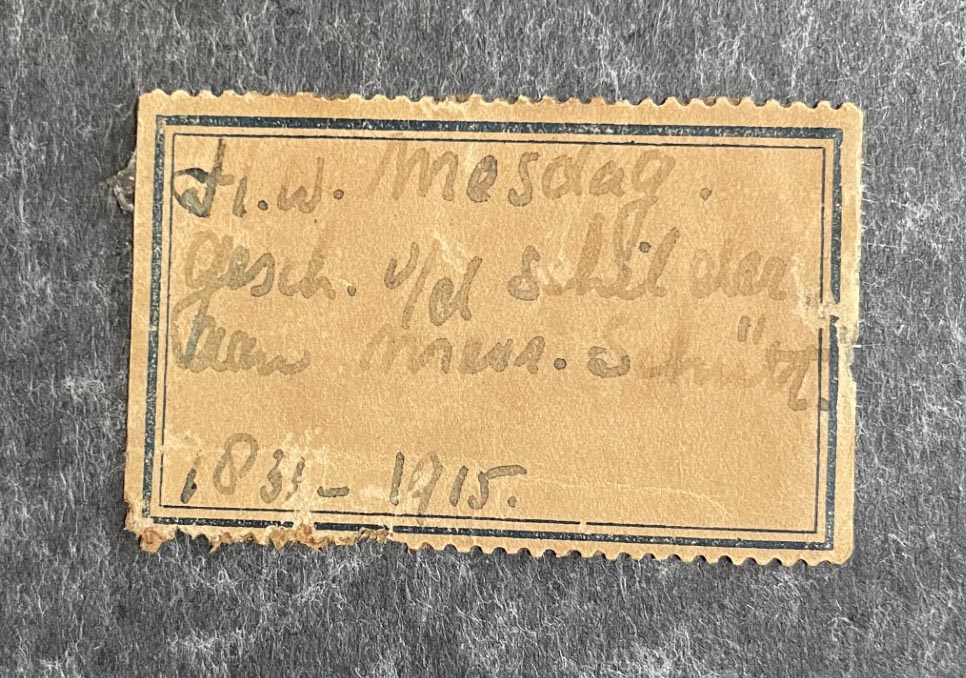 H.W. Mesdag.
gesch. v/d schilder
aan Mevr. Schütz.
1831-1915.